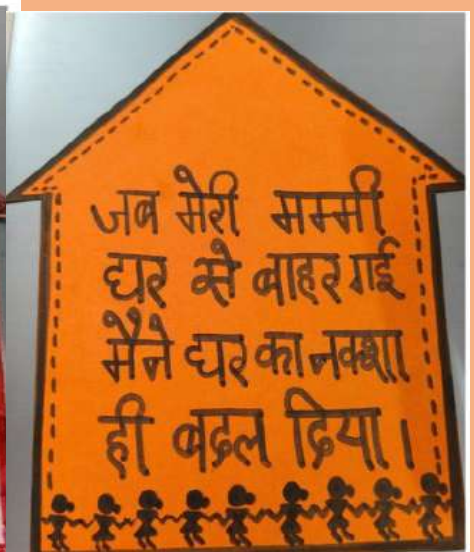 जब मेरी मम्मी
घर से बाहर गई
मैंने घर का नक्शा
ही बदल दिया।